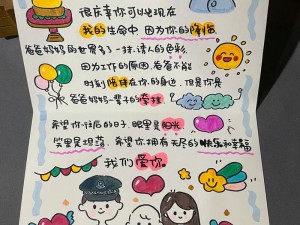 很庆幸你可以出现在
我的生命中 因为你的降临
爸爸妈妈的世界多了一抹迷人的色彩
因为工作的原因,爸爸不能
时刻陪伴在你的身边,但是你是
爸爸妈妈一辈子的牵挂
希望你往后的日子,眼里是阳光
笑里是坦荡,希望你拥有无尽的快乐和幸福
我们爱你